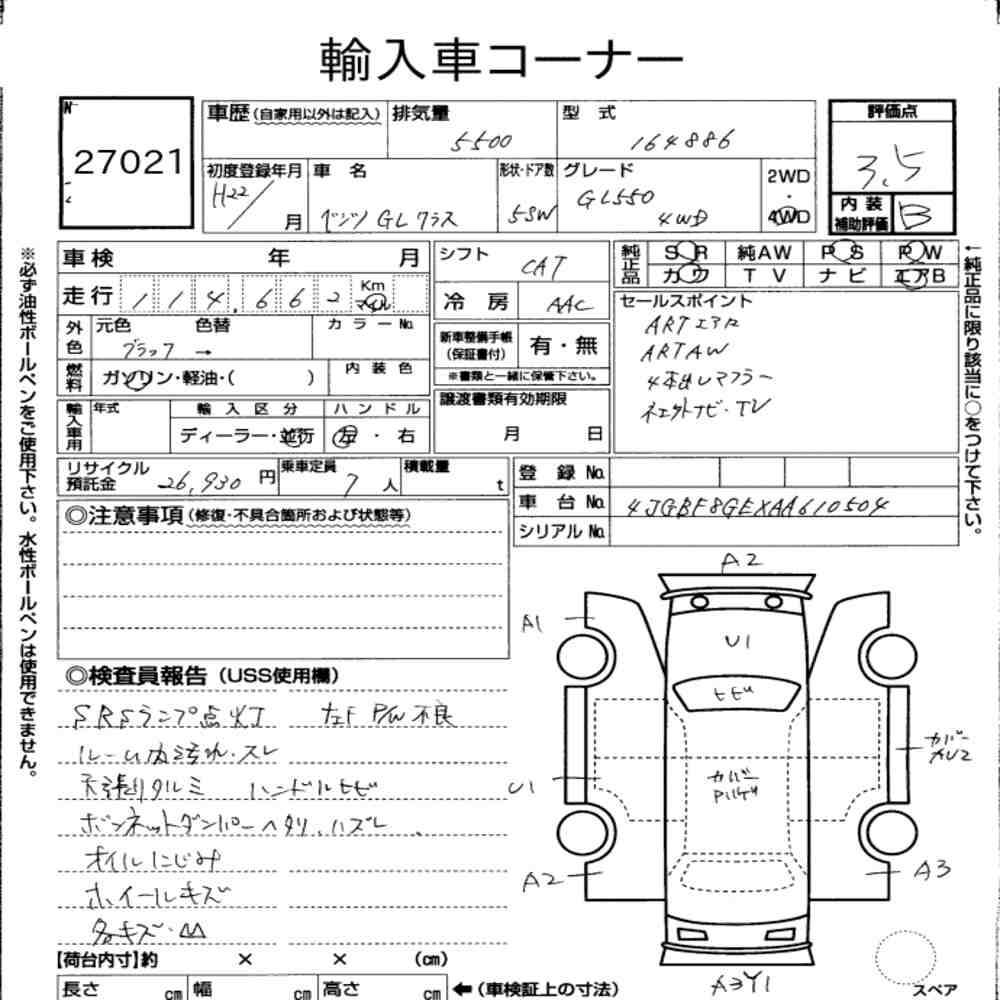 輸入車コーナー
№
27021
車歴(自家用以外は記入)
排気量
5500
型 式
164886
評価点
3.5
初度登録年月
H22/
月
車 名
ベンツ GLクラス
形状・ドア数
5SW
グレード
GL550
4WD
2WD
・
4WD
内 装
補助評価
B
※必ず油性ボールペンをご使用下さい。水性ボールペンは使用できません。
車検 年 月
走行 114,662 Km マイル
外色 元色 色替 カラーNo.
ブラック →
燃料 ガソリン・軽油・( )
内 装 色
輸入車用 年式 輸 入 区 分 ハ ン ド ル
ディーラー・並行 左 ・ 右
シフト
CAT
冷 房 AAC
新車整備手帳
(保証書付)
有・無
※書類と一緒に保管下さい。
譲渡書類有効期限
月 日
純正品 SR 純AW PS PW
カワ TV ナビ エアB
セールスポイント
ARTエアロ
ARTAW
4本出しマフラー
ナビ・TV
←純正品に限り該当に○をつけて下さい。
リサイクル
預託金 26,930 円
乗車定員 7 人
積載量 t
登 録 No.
車 台 No. 4JGBF8GEXAA610504
シリアル No.
◎注意事項(修復・不具合箇所および状態等)
◎検査員報告(USS使用欄)
SRSランプ点灯 左F P/W不良
ルーム内汚れ・スレ
天張りタルミ ハンドルヒビ
ボンネットダンパーヘタリ、ハズレ
オイルにじみ
ホイールキズ
各キズ・凹
A2
A1
U1
ヒビ
U1
カバー
カバー
AU2
A2
A3
A3Y1
スペア
【荷台内寸】約 × × (cm)
長さ cm 幅 cm 高さ cm ←(車検証上の寸法)